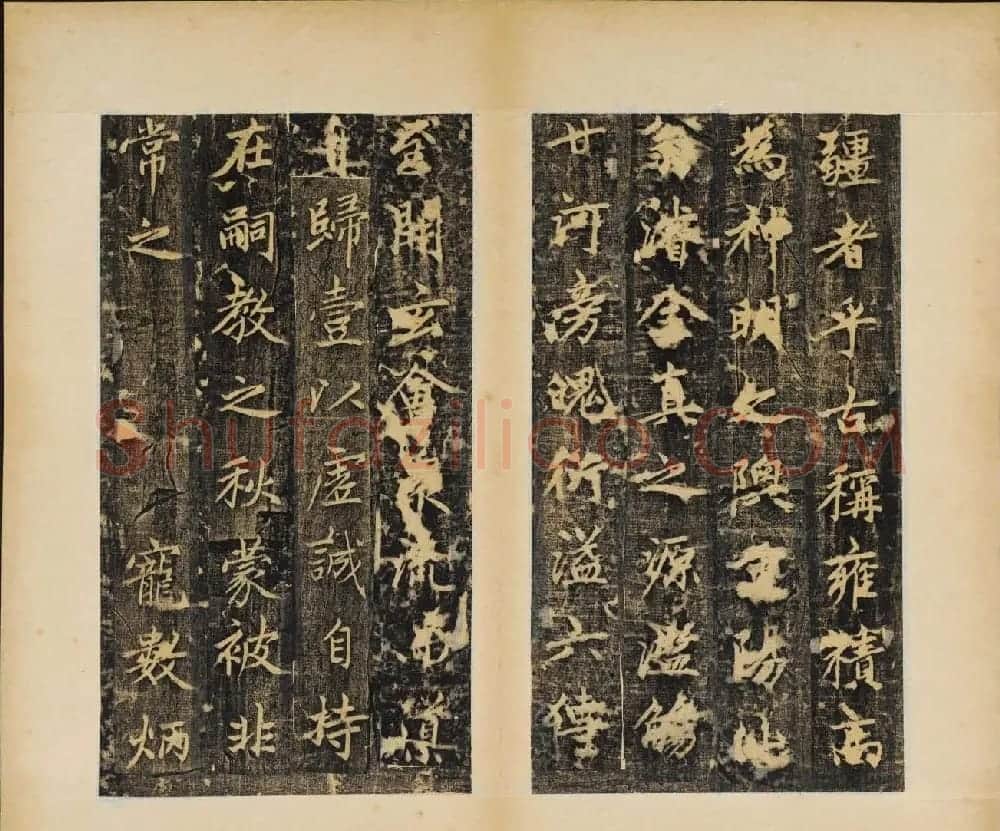 疆者乎古稱雍積高
為神明之隩
濬全真之源濫觴
廿河旁魄衍溢六
至開玄流
歸壹以虛誠自持
在嗣教之秋蒙被非
常之寵數炳
Shufaziliao.COM